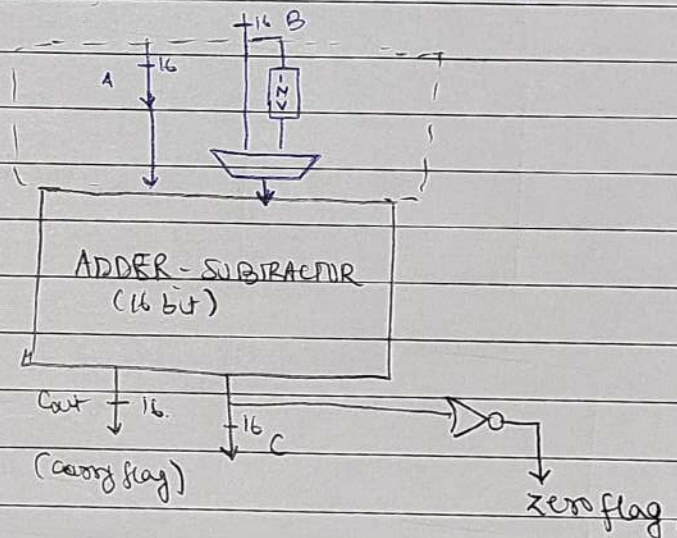 16 B
A
16
INV
ADDER - SUBTRACTOR
(16 bit)
Cout
16.
16
C
(carry flag)
zero flag